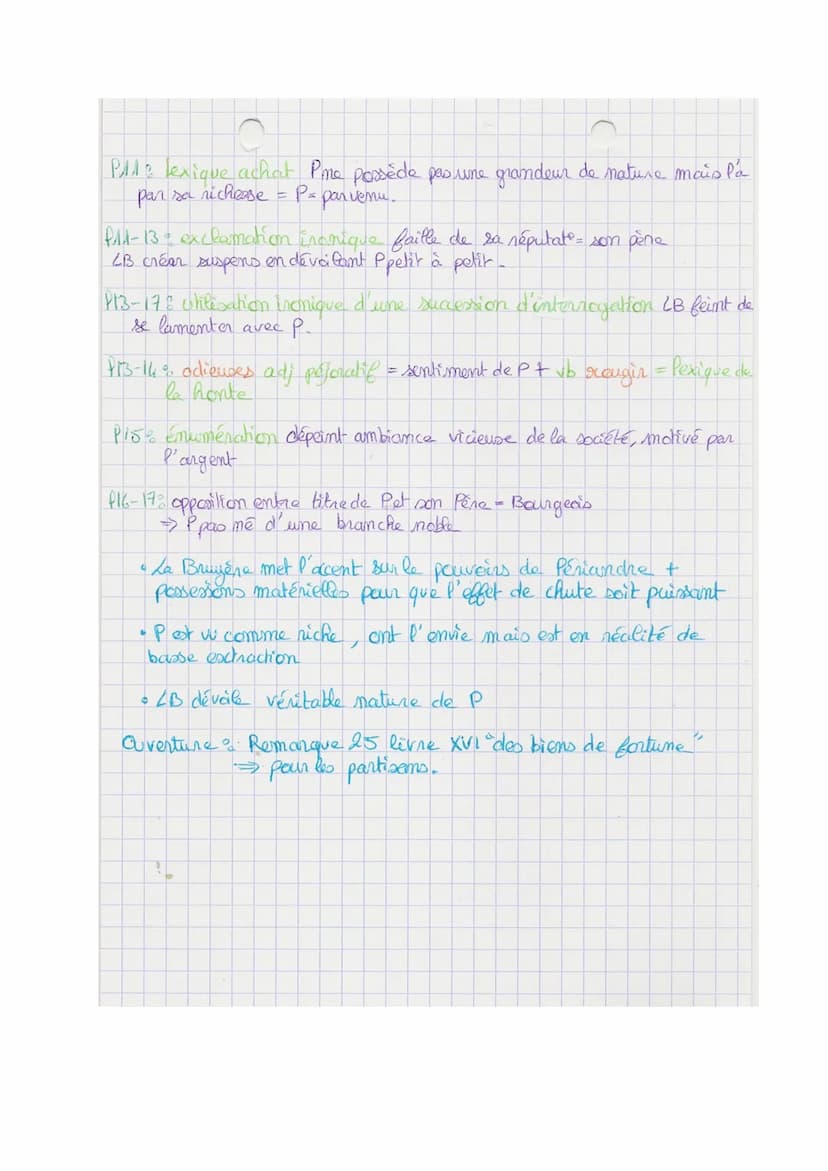 l11: lexique achat P ne possède pas une grandeur de nature mais l'a
par sa richesse = P = parvenu.
l11-13: exclamation ironique faille de sa réputat° = son père
LB créar suspens en dévoilant P petit à petit.
l13-17: utilisation ironique d'une sucession d'interrogation LB feint de
se lamenter avec P.
l13-14: odieuses adj péjoratif = sentiment de P + vb rougir = lexique de
la honte
l15: énumération dépeint ambiance vicieuse de la société, motivé par
l'argent
l16-17: opposition entre titre de P et son Père = Bourgeois
⇒ P pas né d'une branche noble
• La Bruyère met l'accent sur le pouvoirs de Périandre +
possessions matérielles pour que l'effet de chute soit puissant
• P est vu comme riche, ont l'envie mais est en réalité de
basse extraction
• LB dévoile véritable nature de P
Ouverture: Remarque 25 livre XVI "des biens de fortune"
⇒ pour les partisans.